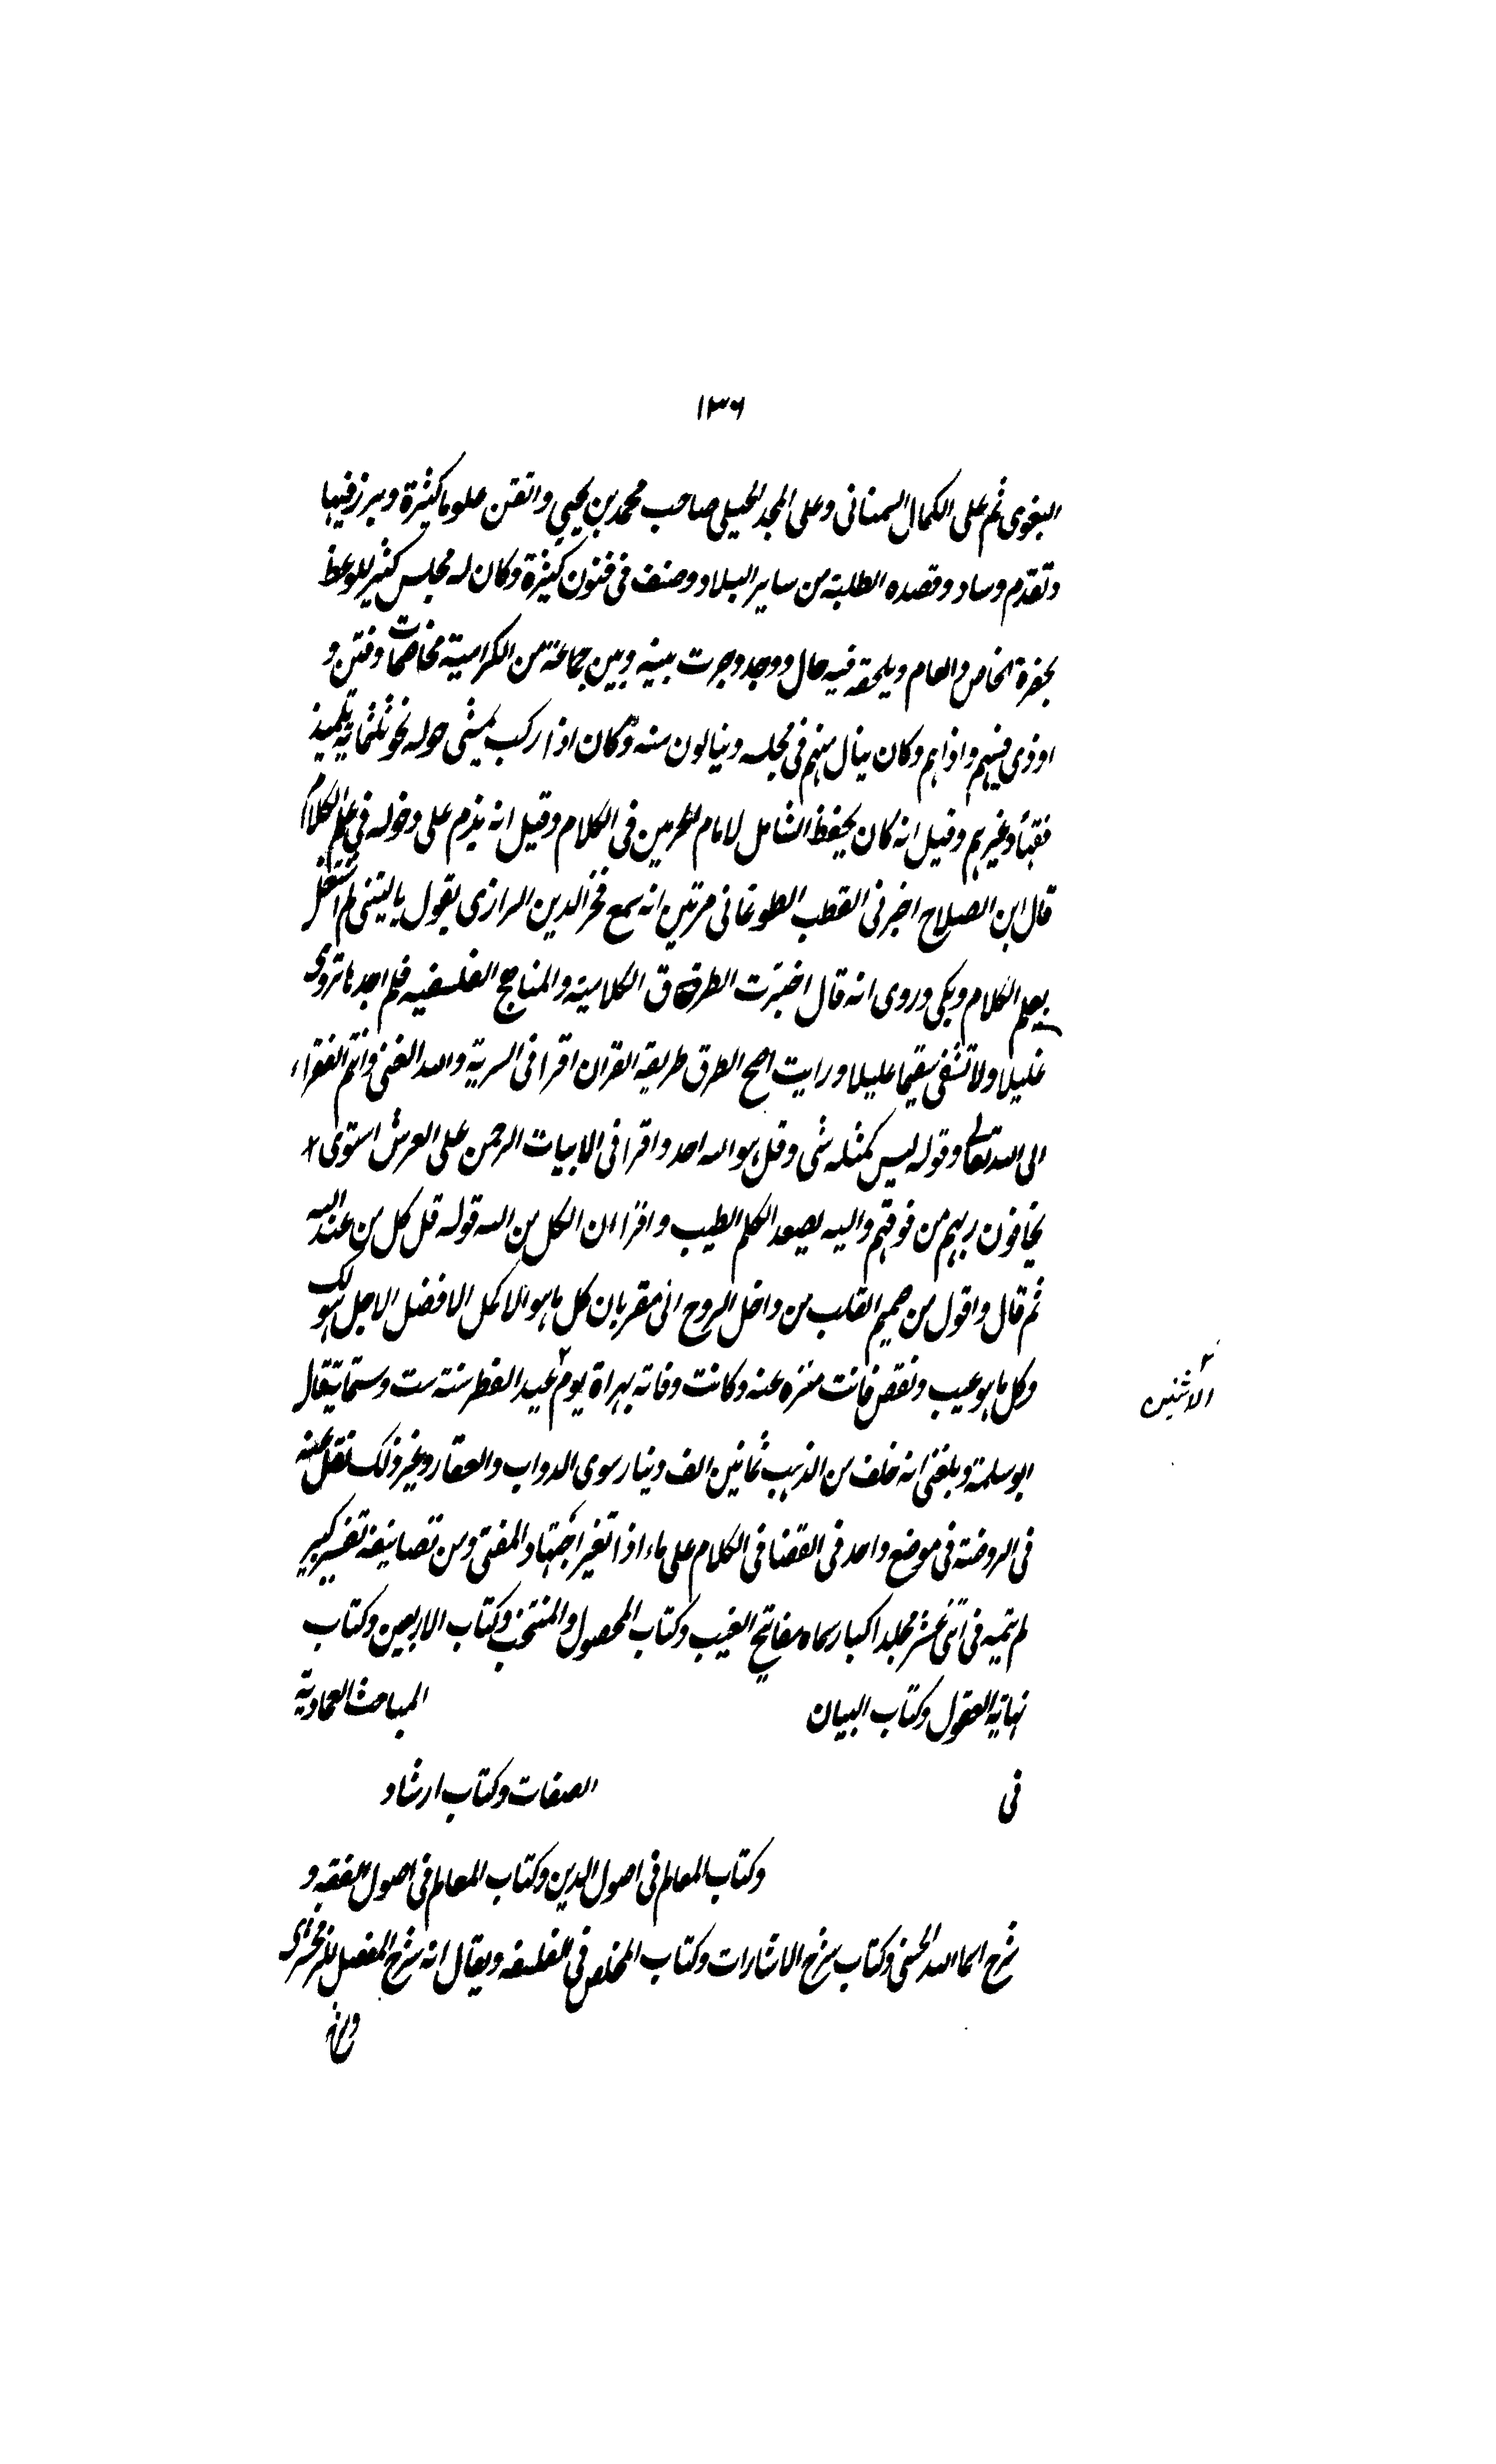 ١٣٦
البغوى ثم على الكمال السمنانى وعلى المجد الجيلى صاحب محمد بن يحيى واتقن علوما كثيرة وبرز فيها
وتقدم وساد وقصده الطلبة من ساير البلاد وصنف فى فنون كثيرة وكان له مجلس كثير للوعظ
يحضره الخاص والعام ويلحقه فيه حال ووجد وجرت بينه وبين جماعة من الكرامية مخاصمات وفتن و
اوذى فيهم واذاهم وكان ينال منهم فى مجلسه وينالون منه وكان اذا ركب يمشى حوله نحو ثلثماية تلميذ
فقهاء وغيرهم وقيل انه كان يحفظ الشامل لامام الحرمين فى الكلام وقيل انه ندم على دخوله فى علم الكلام
قال ابن الصلاح اخبرنى القطب الطوغانى مرتين انه سمع فخر الدين الرازى يقول ياليتنى لم اشتغل
بعلم الكلام وبكى وروى انه قال اختبرت الطرق الكلامية والمناهج الفلسفيه فلم اجدها تروى
غليلا ولا تشفى سقيما عليلا ورايت اصح الطرق طريقة القران اقرا فى السرية والله الغنى وانتم الفقراء
الى الله تعالى وقوله ليس كمثله شى وقل هو الله احد واقرا فى الابيات الرحمن على العرش استوى
يخافون ربهم من فوقهم واليه يصعد الكلم الطيب واقرا ان الكل من الله قوله قل كل من عند الله
ثم قال واقول من صميم القلب من داخل الروح انى مقر بان كل ما هو الاكمل الافضل الاجل هو لك
وكل ما هو عيب ونقص فانت منزه عنه وكانت وفاته بهراة يوم٢ عيد الفطر سنة ست وستماية قال
٢ الاثنين
ابو سلمة وبلغنى انه خلف من الذهب ثمانين الف دينار سوى الدواب والعقار وغير ذلك نقل عنه
فى الروضة فى موضع واحد فى القضا فى الكلام على ما اذا تغير اجتهاد المفتى ومن تصانيفه تفسير كبير
لم يتمه فى اثنى عشر مجلدا كبار سماه مفاتيح الغيب وكتاب المحصول والمنتخب وكتاب الاربعين وكتاب
نهاية العقول وكتاب البيان المباحث العمادية
فى الصفات وكتاب ارشاد
وكتاب المعالم فى اصول الدين وكتاب المعالم فى اصول الفقه و
شرح اسما الله الحسنى وكتاب شرح الاشارات وكتاب الملخص فى الفلسفه ويقال انه شرح المفصل للزمخشرى